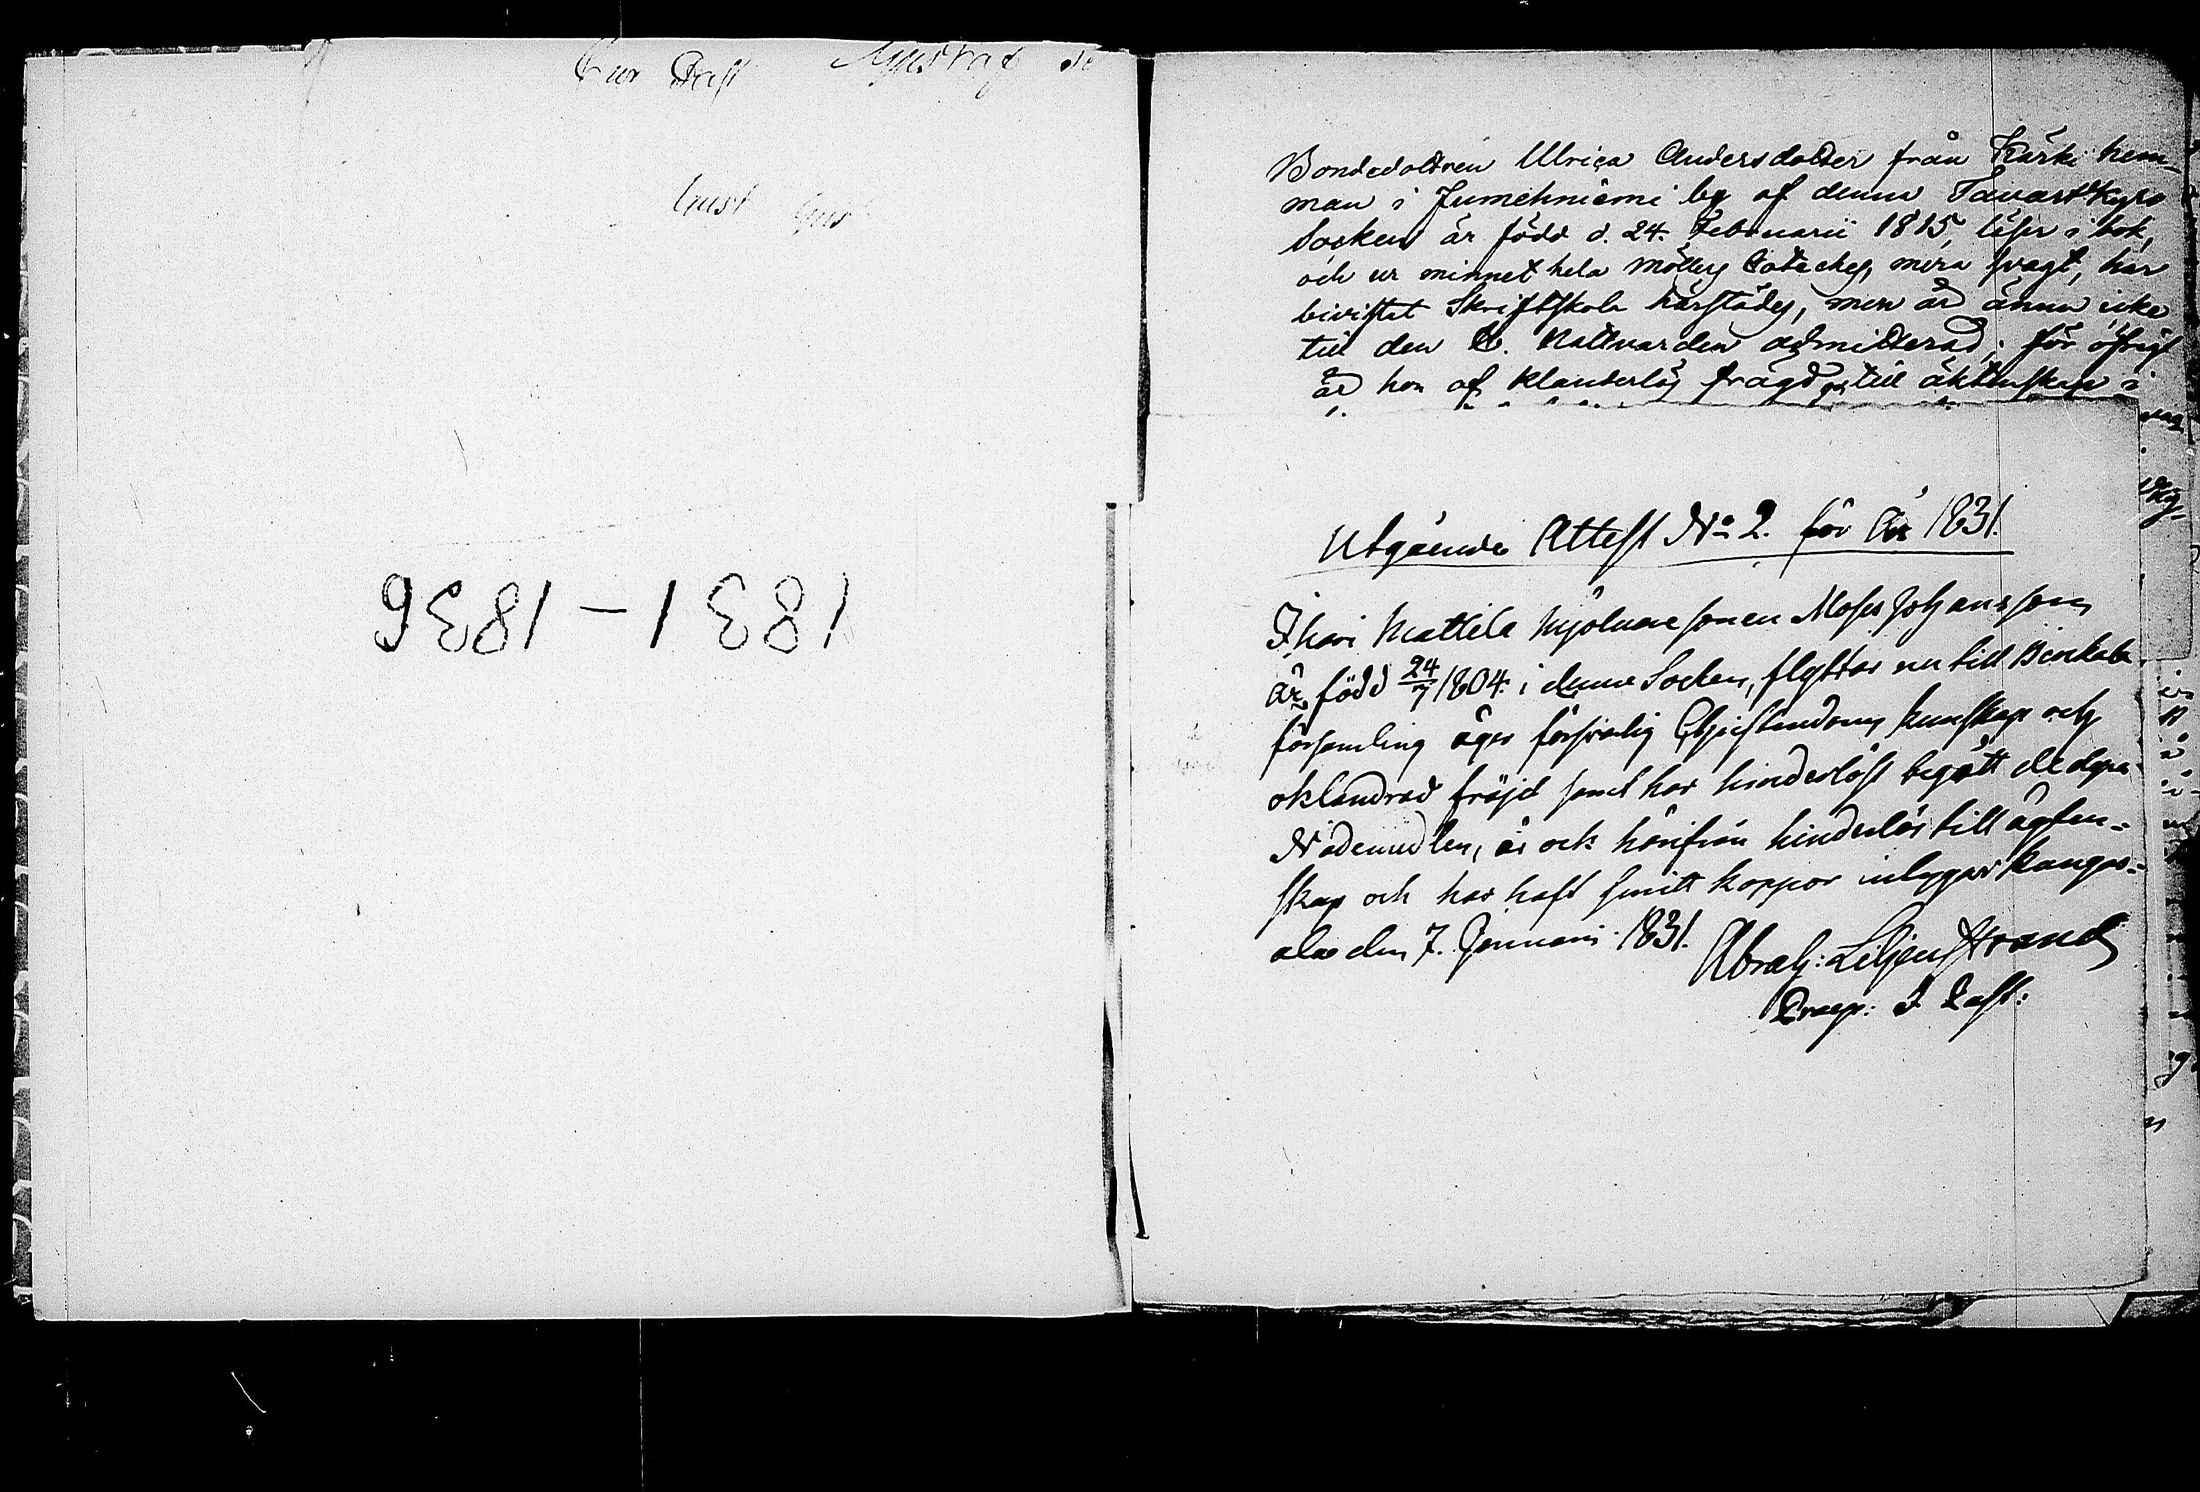 Gust Gust
1831–1836
Bondedottren Ulrica Andersdotter från Kärki hem-
man i Jumehniemi by af denna Tavastkyro
Socken är född d. 24. Februarii 1815, läser i bok,
och ur minnet hela Möllers Cateches, mera svagt, har
bivistat Skriftskola härstädes, men är ännu icke
till den H. Nattvarden admitterad; för öfrigt
är hon af klanderlös frägd och till äktenskap i
Utgående Attest No 2. för År 1831.
Ihari Mattila Mjölnaresonen Moses Johansson
är född 24/7 1804. i denna Socken, flyttar nu till Birkala
församling äger försvarlig Christendoms kunskap och
oklandrad fräjd samt har hinderlöst begått de dyra
Nådemedlen, är ock härifrån hinderlös till ägten-
skap och har haft smitt koppor intygar Kangas-
ala den 7. Januari 1831.
Abrah: Liljenstrand
Praep: & Past: